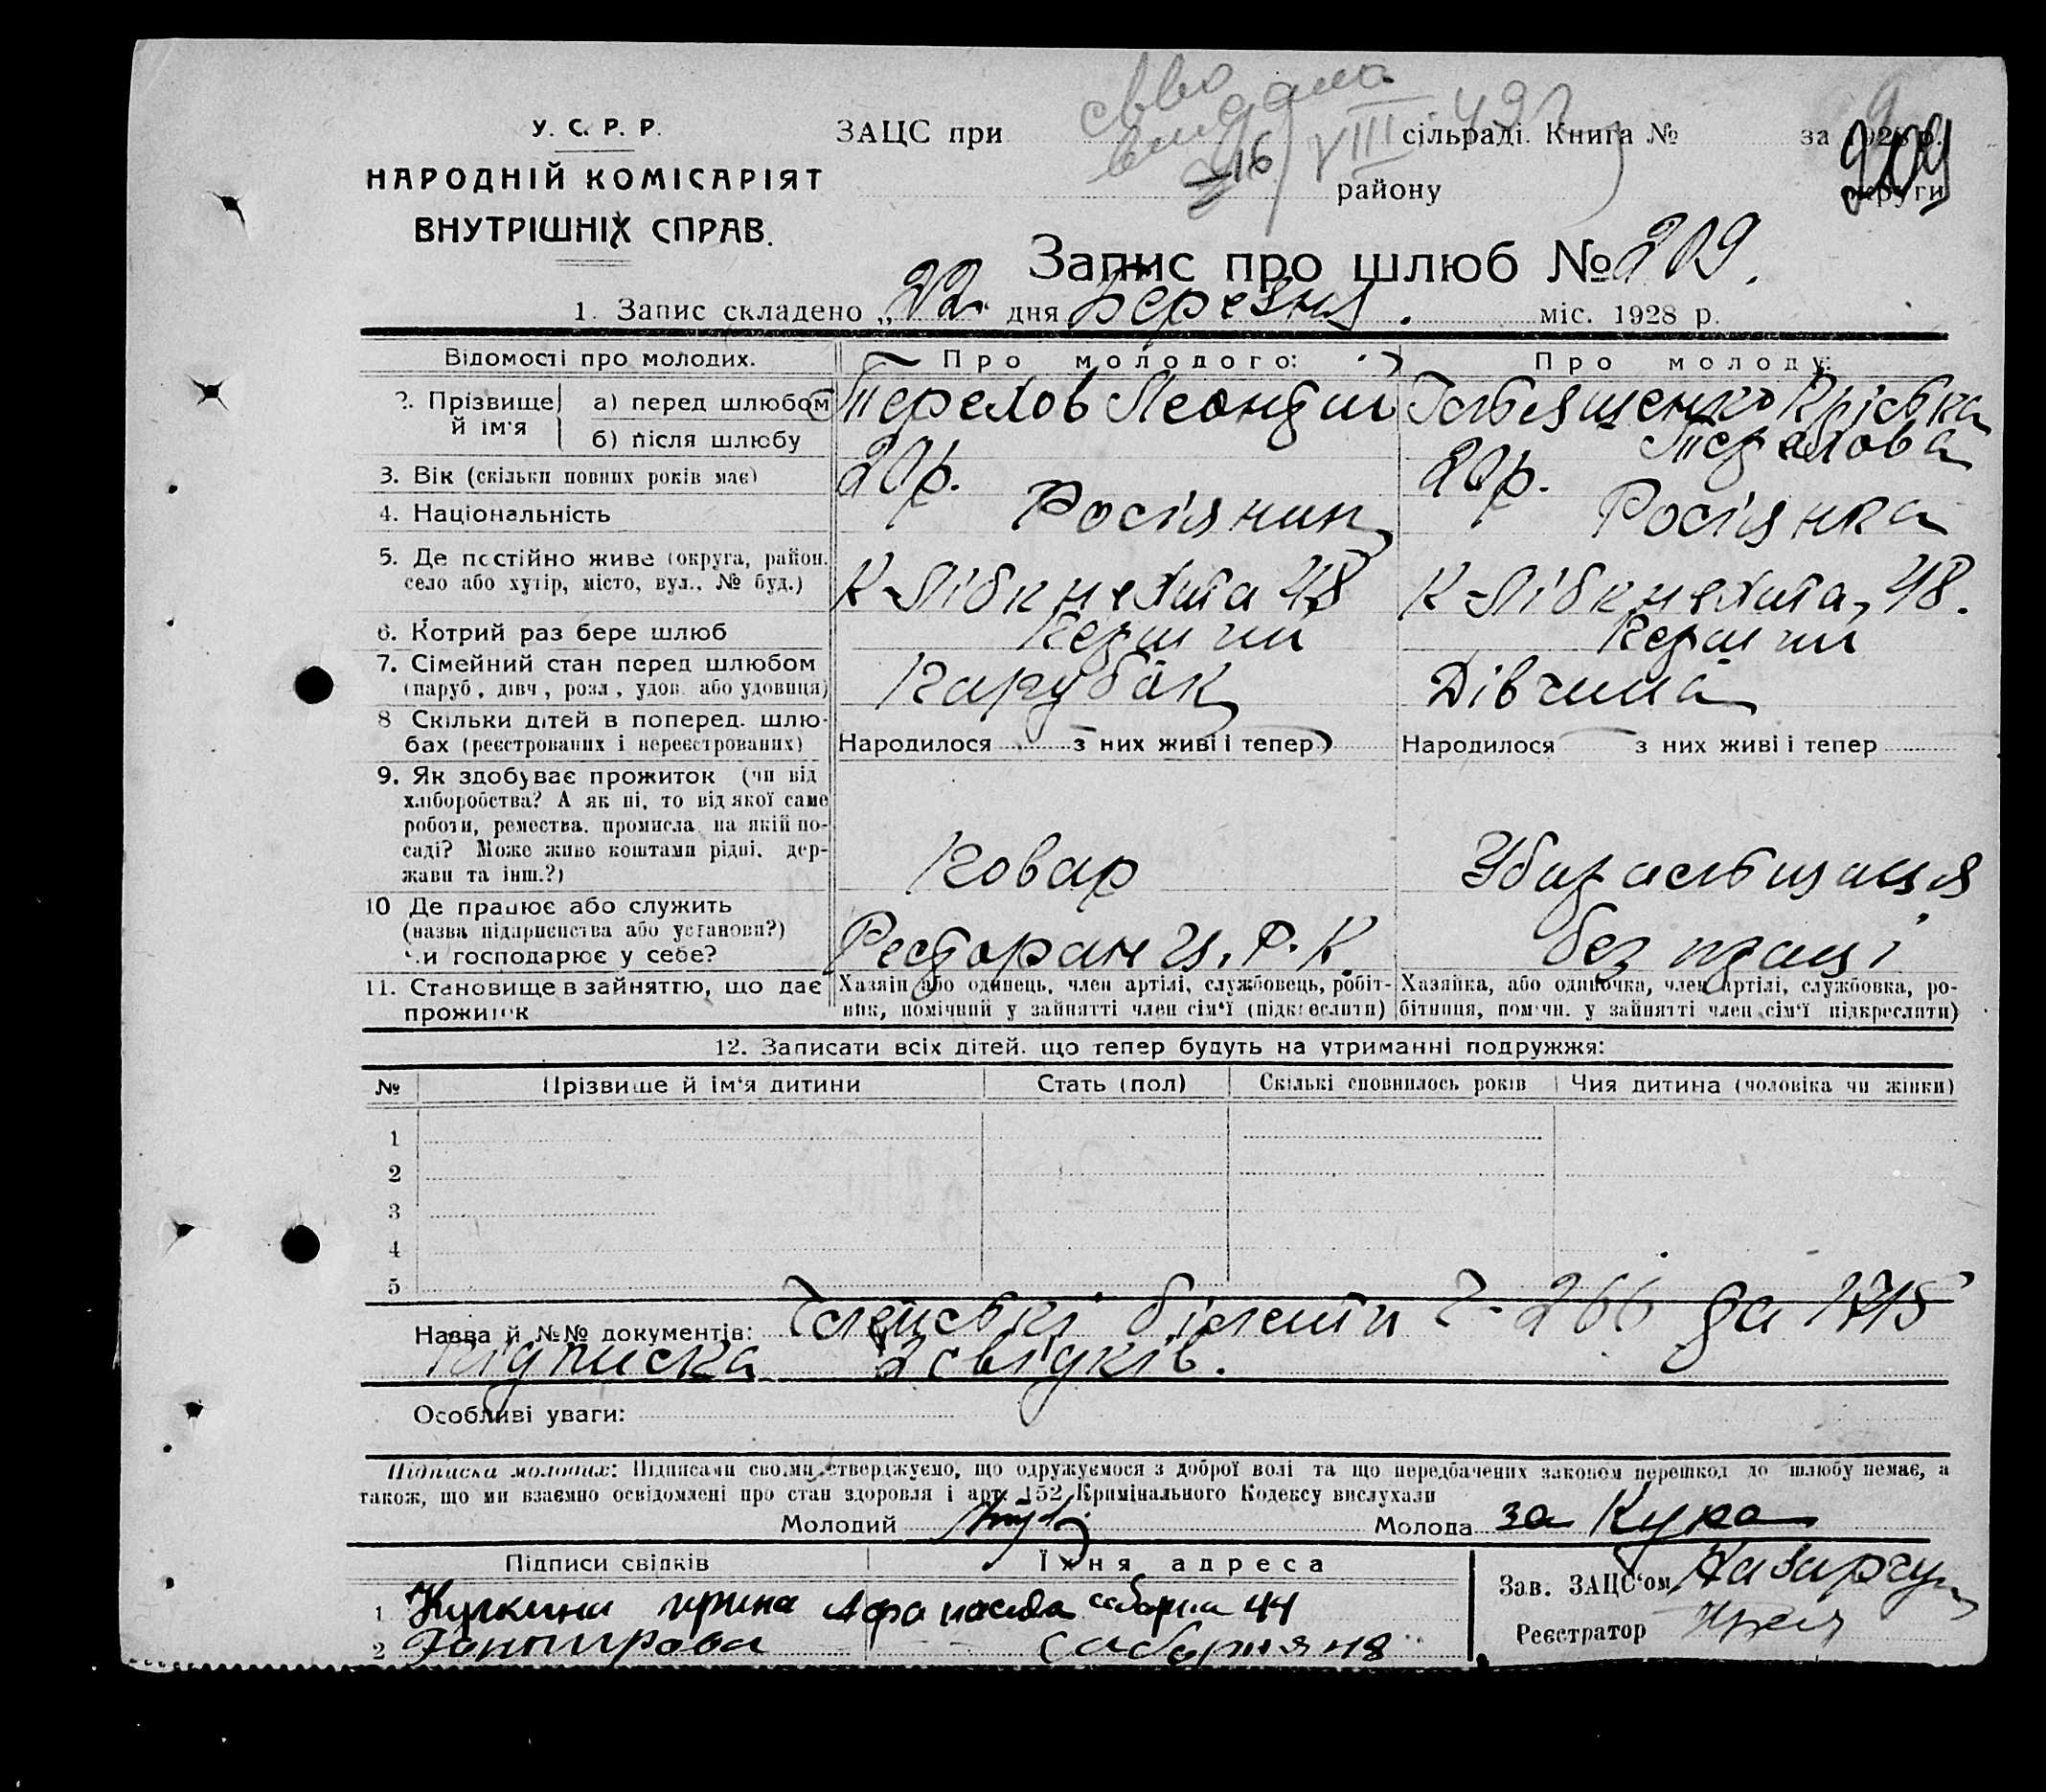 У. С. Р. Р.
НАРОДНІЙ КОМІСАРІЯТ
ВНУТРІШНІХ СПРАВ.
ЗАЦС при сільраді. Книга № за 1928 р.
16/VIII 49
району округи
209
Запис про шлюб № 209.
1. Запис складено „22“ дня Березня. міс. 1928 р.
Відомості про молодих. Про молодого: Про молоду:
2. Прізвище й ім'я
а) перед шлюбом Терехов Леонтий
б) після шлюбу Терехова
3. Вік (скільки повних років має) 20 р. 20 р.
4. Національність Росіянин Росіянка
5. Де постійно живе (округа, район, село або хутір, місто, вул., № буд.) К-Лібкнехта 48 К-Лібкнехта, 48.
6. Котрий раз бере шлюб Перший Перший
7. Сімейний стан перед шлюбом (паруб., дівч., розл., удов. або удовиця) Парубок Дівчина
8 Скільки дітей в поперед. шлюбах (реєстрованих і нереєстрованих) Народилося з них живі і тепер Народилося з них живі і тепер
9. Як здобуває прожиток (чи від хліборобства? А як ні, то від якої саме роботи, ремества, промисла, на якій посаді? Може живе коштами рідні, держави та інш.?) Ковар
10 Де працює або служить (назва підприємства або установи?) чи господарює у себе? Ресторан Ц.Р.К. без праці
11. Становище в зайняттю, що дає прожиток
Хазяїн або одинець, член артілі, службовець, робітник, помічний у зайнятті член сім'ї (підкреслити)
Хазяйка, або одиночка, член артілі, службовка, робітниця, помічн. у зайнятті член сім'ї підкреслити)
12. Записати всіх дітей, що тепер будуть на утриманні подружжя:
№ Прізвище й ім'я дитини Стать (пол) Скількі сповнилось років Чия дитина (чоловіка чи жінки)
1
2
3
4
5
Назва й №№ документів: Членські білети 266 за 1715
Підписка 2 свідків.
Особливі уваги:
Підписка молодих: Підписами своїми стверджуємо, що одружуємося з доброї волі та що передбачених законом перешкод до шлюбу немає, а
також, що ми взаємно освідомлені про стан здоровля і арт. 152 Кримінального Кодексу вислухали
Молодий Молода за
Підписи свідків Їхня адреса
Зав. ЗАЦС'ом
1 44
Реєстратор
2